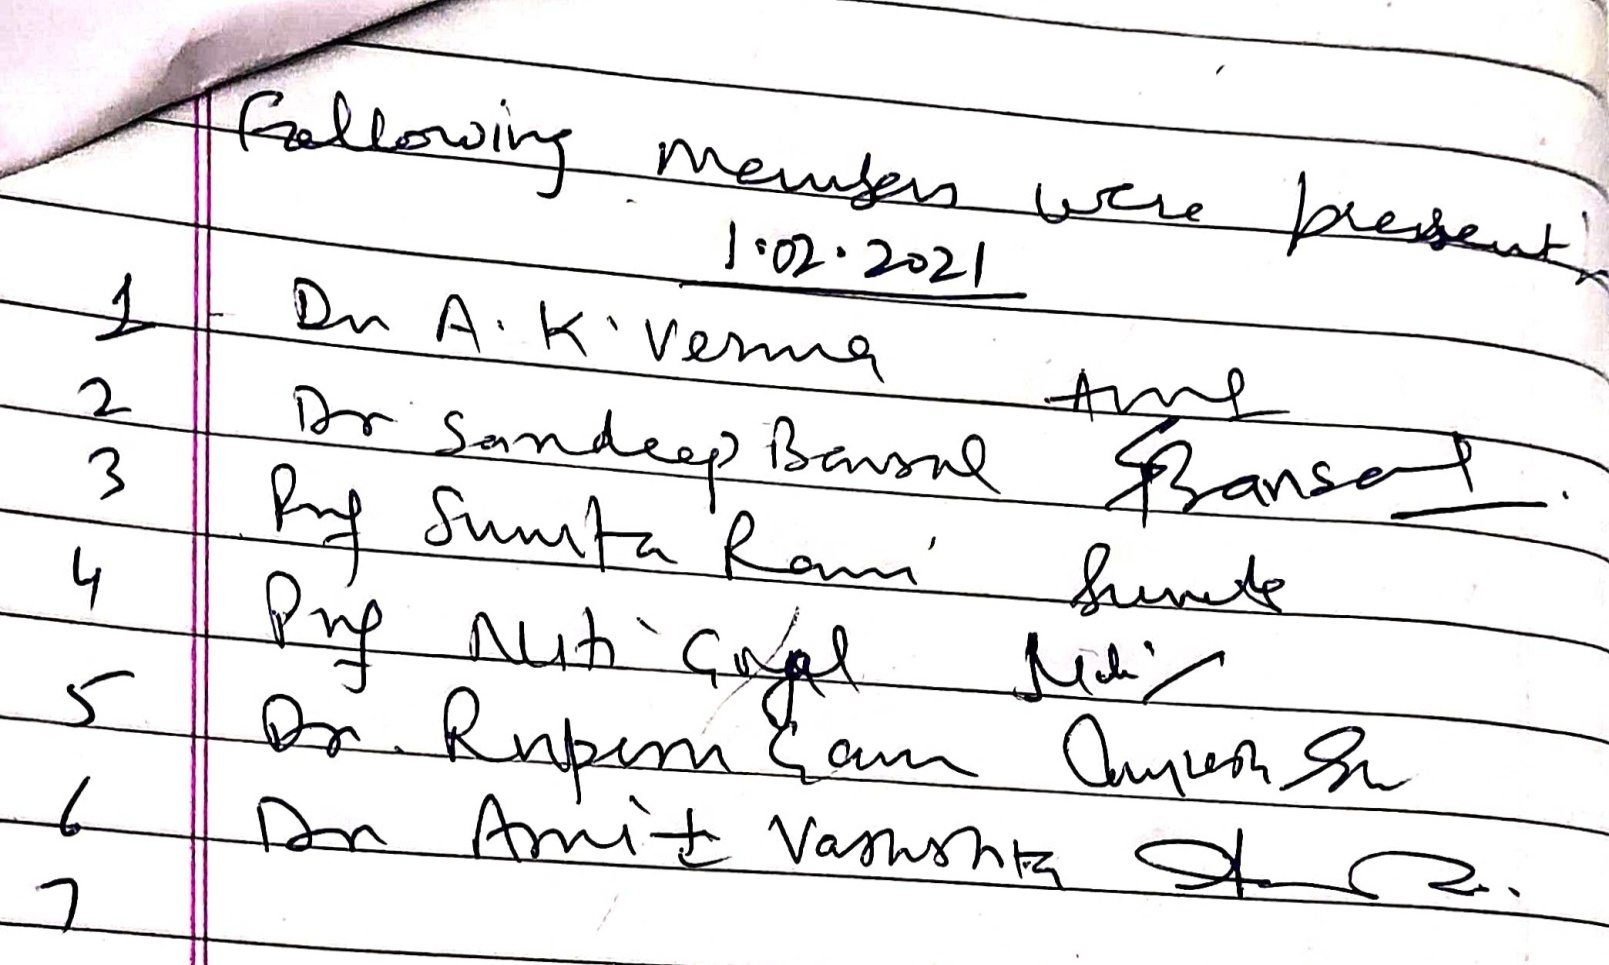 Following Members were present
1.02.2021
1 Dr A.K. Verma
2 Dr Sandeep Bansal Bansal
3 Prof Sunita Rani Sunita
4 Prof Niti Goyal Niti
5 Dr. Rupam
6 Dr Amit Vashishta
7